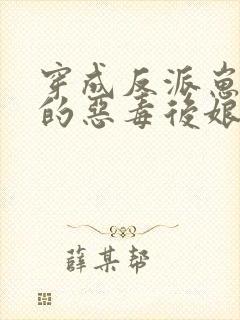 穿成反派崽
的惡毒後娘
薛某幫